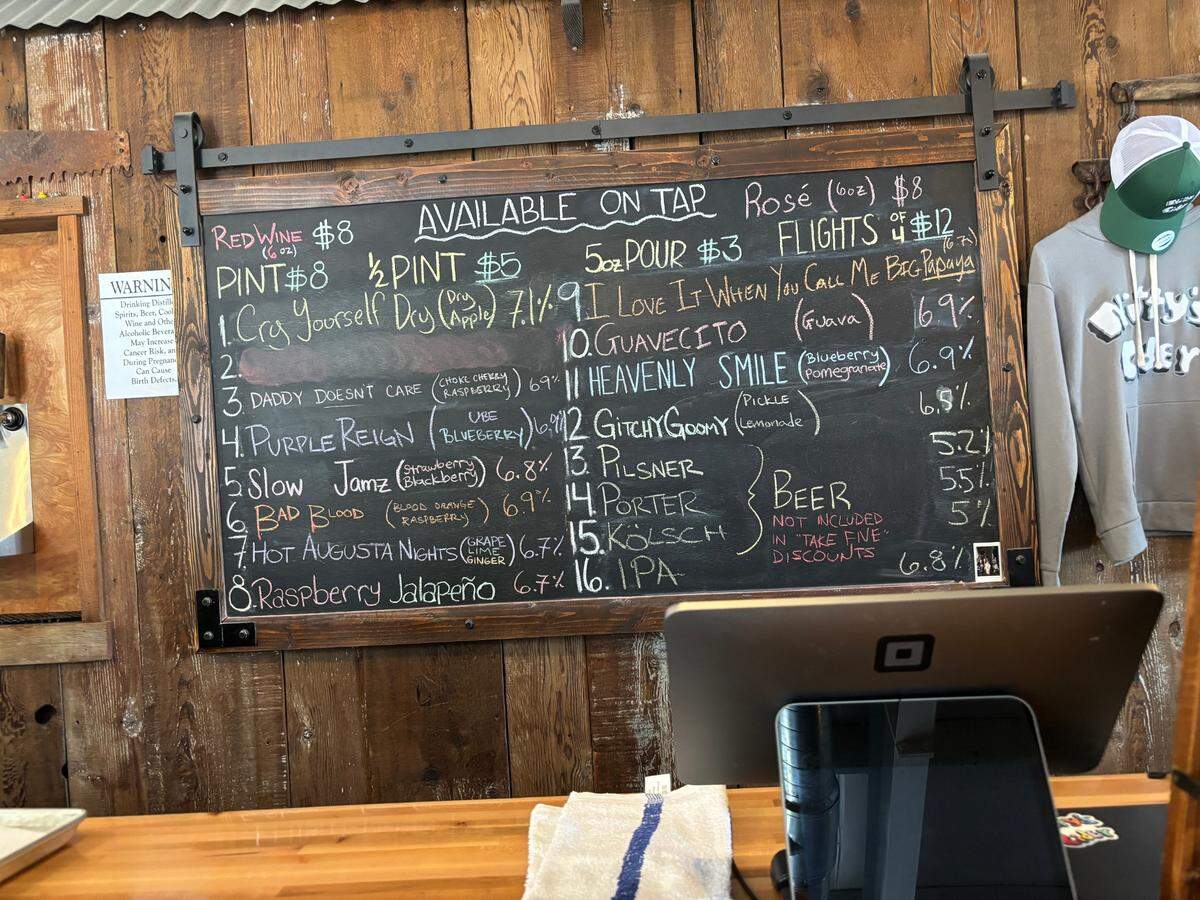 AVAILABLE ON TAP
Rosé (6oz) $8
RED WINE $8
(6oz)
PINT $8
½ PINT $5
5oz POUR $3
FLIGHTS OF 4 $12
1. Cry Yourself Dry (Dry Apple) 7.1%
2.
3. DADDY DOESN'T CARE (CHOKE CHERRY RASPBERRY) 6.9%
4. PURPLE REIGN (UBE BLUEBERRY) 6.9%
5. Slow Jamz (Strawberry Blackberry) 6.8%
6. BAD BLOOD (BLOOD ORANGE RASPBERRY) 6.9%
7. HOT AUGUSTA NIGHTS (GRAPE LIME GINGER) 6.7%
8. Raspberry Jalapeño 6.7%
9. I LOVE IT WHEN YOU CALL ME BIG PAPAYA
10. GUAVECITO (Guava) 6.9%
11. HEAVENLY SMILE (Blueberry Pomegranate) 6.9%
12. GITCHY GOOMY (PICKLE Lemonade)
13. PILSNER 5.2%
14. PORTER 5.5%
15. KÖLSCH 5%
16. IPA 6.8%
BEER
NOT INCLUDED
IN "TAKE FIVE"
DISCOUNTS
WARNIN
Drinking Distill
Spirits, Beer, Cool
Wine and Othe
Alcoholic Bevera
May Increase
Cancer Risk, an
During Pregnan
Can Cause
Birth Defects.